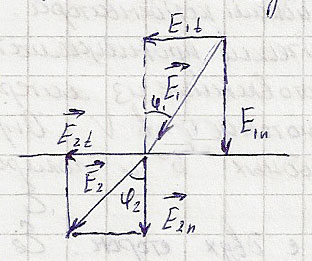 E₁t
E₁
φ₁
E₁n
E₂t
E₂
φ₂
E₂n